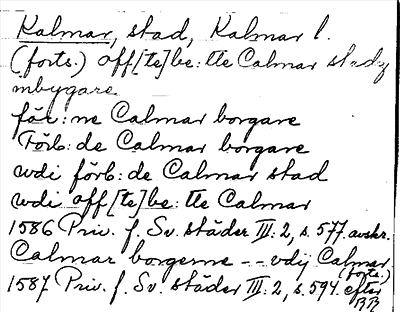 Kalmar, stad, Kalmar l.
(forts.) off[te]be:tte Calmar stadz
inbygare
för:ne Calmar borgare
Förb:de Calmar borgare
wdi förb:de Calmar stad
wdi off[te]be:tte Calmar
1586 Priv. f. Sv. städer III:2, s. 577. avskr.
Calmar borgerne -- vdij Calmar
(forts.)
1587 Priv. f. Sv. städer III:2, s. 594. efter
RR